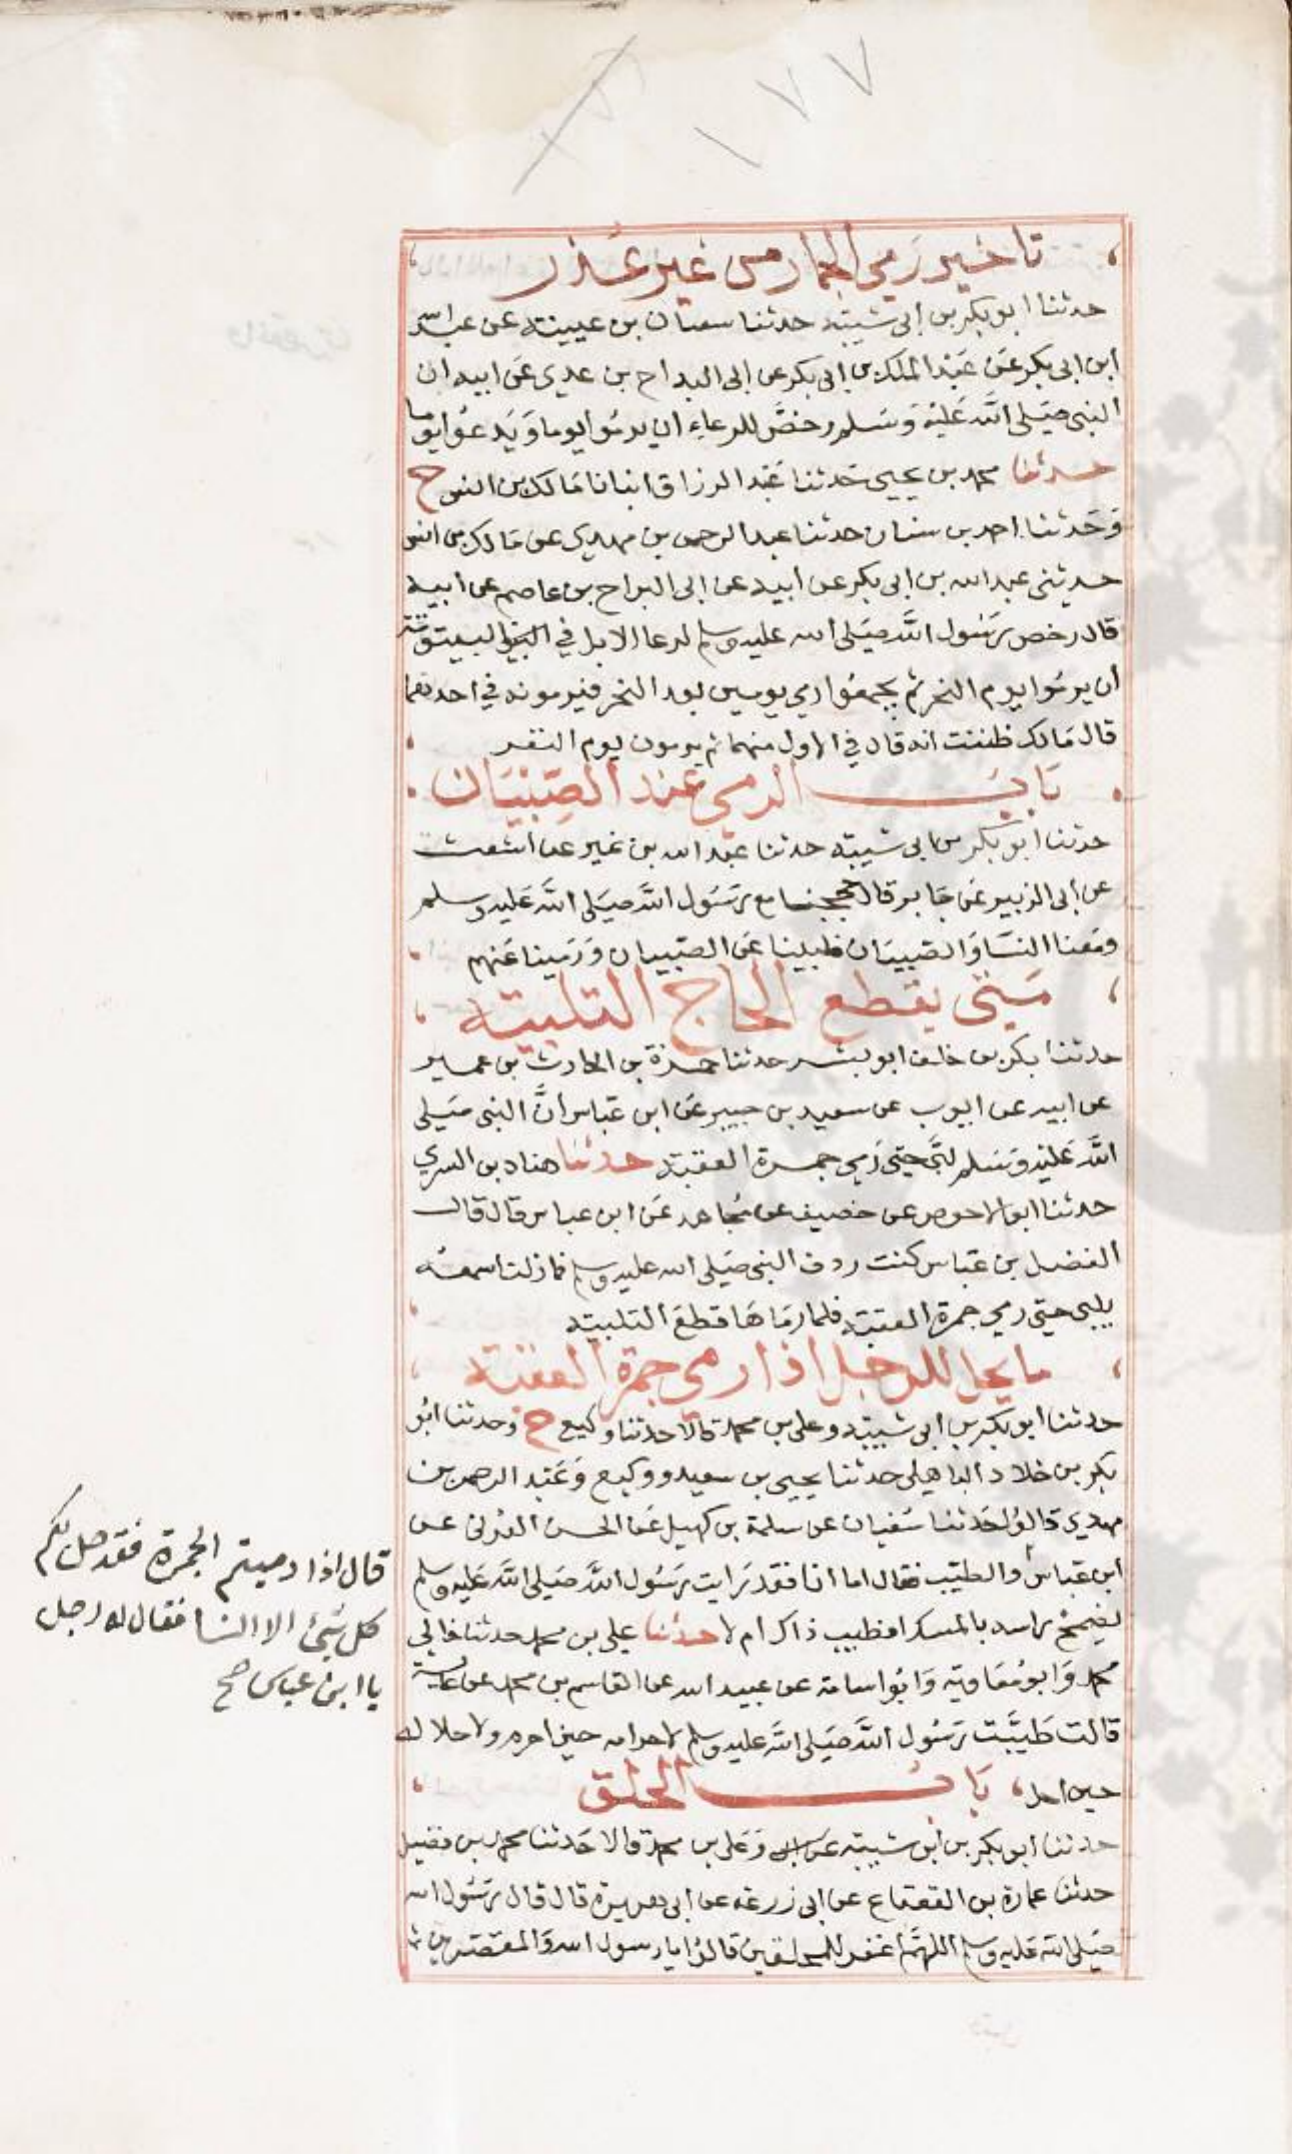 ١٧٧
تاخير رمي الجمار من غير عذر
حدثنا ابو بكر بن ابى شيبة حدثنا سفيان بن عيينة عن عبد الله
ابن ابى بكر عن عبد الملك بن ابى بكر عن ابى البداح بن عدى عن ابيه ان
النبى صَلى الله عَليْه وَسَلم رخصَّ للرعاء ان يرمُوا يوما وَيَدعوُا يوما
حدثنا محمد بن يحيى حَدثنا عَبْد الرزاق انبانا مَالك بن انس ح
وَحَدثنا احمد بن سنان حدثنا عبد الرحمن بن مهدى عن مَالك بن انس
حدثنى عبد الله بن ابى بكر عن ابيه عن ابى البداح بن عاصم عن ابيه
قال رخص رَسُول الله صَلى الله عليه وسلم لرعا الابل في البيتوتة
ان يرمُوا يوم النحر ثم يجمعُوا رمي يومين بعد النحر فيرمونه في احدهما
قال مَالك ظننت انه قال في الاول منهما ثم يرمون يوم النفر
بَاب الرمي عند الصِّبْيَان
حدثنا ابو بكر بن ابى شيبة حدثنا عبْد الله بن نمير عن اشعث
عن ابى الزبير عَن جَابر قال حججنا مع رَسُول الله صَلى الله عَليه وسلم
ومَعنا النسَا وَالصبيَان فلبينا عَن الصّبيان وَرَمَينا عَنهم
مَتى يقطع الحاج التلبية
حدثنا بكر بن خلف ابو بشر حدثنا حمزة بن الحارث بن عمير
عن ابيه عن ايوب عن سعيد بن جبير عَن ابن عَباس انَّ النبى صَلى
الله عَليْه وَسَلم لبَّى حتى رَمي جمرة العقبة حدثنا هناد بن السري
حدثنا ابو الاحوص عن خصيف عن مُجاهد عَن ابن عباس قال قال
الفضل بن عَباس كنت ردف النبى صَلى الله عليه وسلم فما زلت اسمعُه
يلبى حتى رمي جمرة العقبة فلما رمَاهَا قطعَ التلبية
ما يحل للرجل اذا رمي جمرة العقبة
حدثنا ابو بكر بن ابى شيبة وعلى بن محمد قالا حدثنا وكيع ح وحدثنا ابُو
بَكر بن خلاد الباهلى حدثنا يحيى بن سعيد ووكيع وَعَبْد الرحمن بن
مهدى قالوُا حَدثنا سُفيان عن سلمة بن كهيل عَن الحسن العُرنى عن
ابن عَباس والطيّب فقال اما انا فقد رَايت رَسُول الله صَلى الله عَليه وسلم
يضمخ راسه بالمسك افطيب ذاك ام لا حدثنا علي بن محمد حدثنا خالي
محمد وَابو مُعَاوية وَابُو اسامة عن عبيد الله عن القاسم بن محمد عن عايشة
قالت طَيبَّت رَسُول الله صَلى الله عليه وسلم لاحرامه حين احرم ولاحلاله
حين احل بَاب الحلق
حدثنا ابو بكر بن ابى شيبة وَعَلى بن محمد قالا حَدثنا محمد بن فضيل
حدثنا عمارة بن القعقاع عن ابى زرعة عن ابى هريرة قال قال رَسُول الله
صَلى الله عَليه وسلم اللهُمَّ اغفر للمحلقين قالوُا يا رسول الله وَالمقصرين
قال اذا رميتم الجمرة فقد حل لكم
كل شئ الا النسا فقال له رجل
يا ابن عباس صح